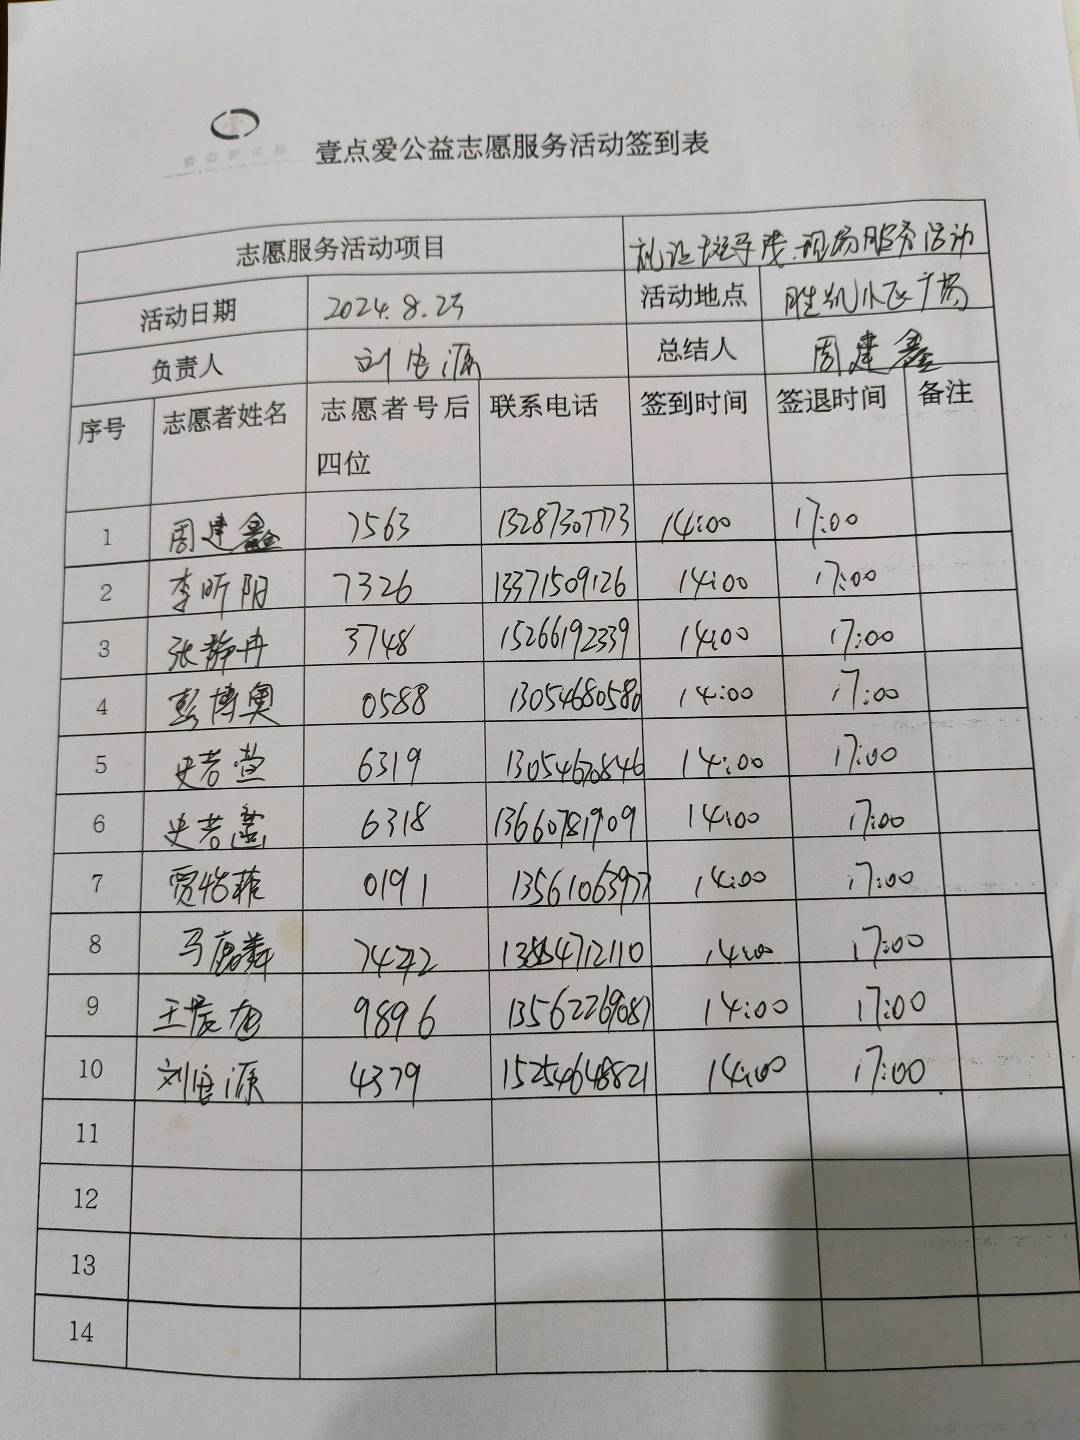 壹点爱公益志愿服务活动签到表
志愿服务活动项目 现场服务活动
活动日期 2024.8.23 活动地点 广场
负责人 总结人 周建鑫
序号 志愿者姓名 志愿者号后四位 联系电话 签到时间 签退时间 备注
1 周建鑫 7563 13287307773 14:00 17:00
2 李昕阳 7326 13371509126 14:00 17:00
3 张静冉 3748 15266192339 14:00 17:00
4 彭博奥 0588 13054680580 14:00 17:00
5 史若萱 6319 13054670846 14:00 17:00
6 史若 6318 13660781909 14:00 17:00
7 贾怡菲 0191 13561063977 14:00 17:00
8 马 14:00 17:00
9 王 9896 13562269087 14:00 17:00
10 刘 源 4379 15254648821 14:00 17:00
11
12
13
14